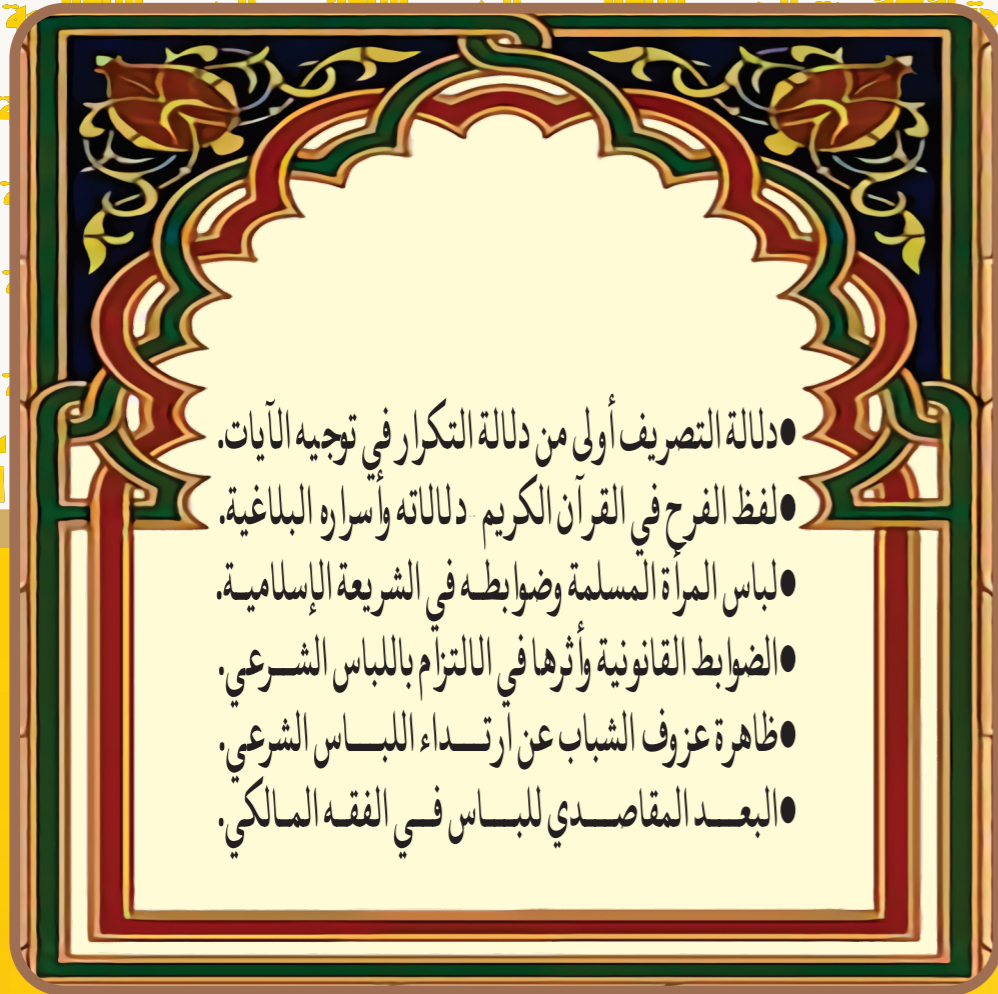 ●دلالة التصريف أولى من دلالة التكرار في توجيه الآيات.
●لفظ الفرح في القرآن الكريم دلالاته وأسراره البلاغية.
●لباس المرأة المسلمة وضوابطـه في الشريعة الإسلاميـة.
●الضوابط القانونية وأثرها في الالتزام باللباس الشـــرعي.
●ظاهرة عزوف الشباب عن ارتـــداء اللبـــاس الشرعي.
●البعـــد المقاصـــدي للبـــاس فـــي الفقـه المـالكي.